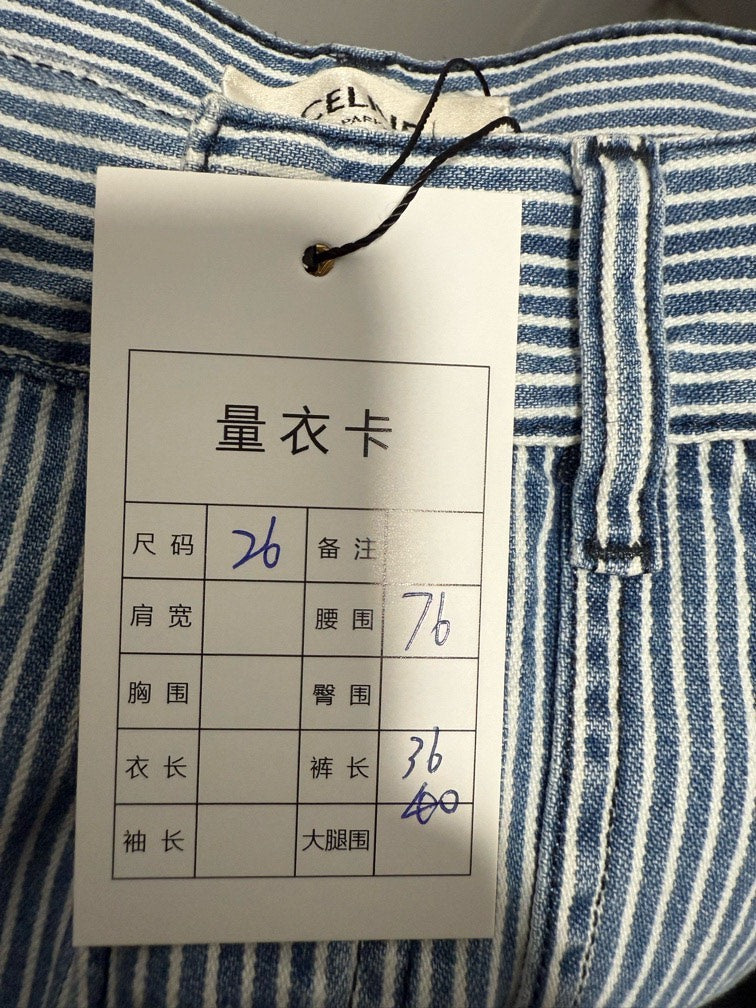 CELINE
PARIS
量衣卡
尺码 26 备注
肩宽 腰围 76
胸围 臀围
衣长 裤长 36
袖长 大腿围